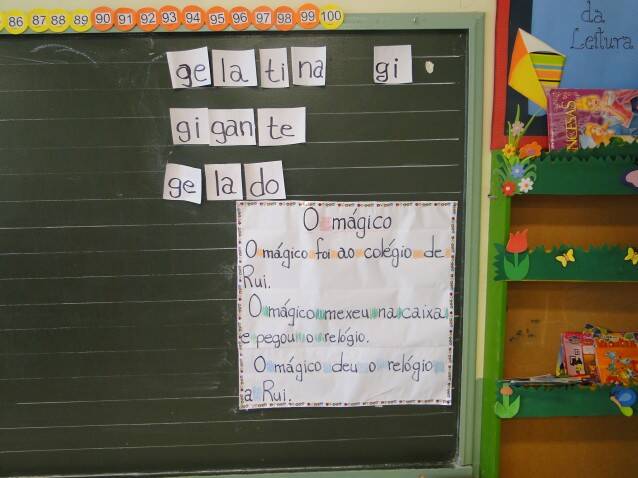 86 87 88 89 90 91 92 93 94 95 96 97 98 99 100
da
Leitura
ge la ti na gi
gi gan te
ge la do
O mágico
O mágico foi ao colégio de
Rui.
O mágico mexeu na caixa
e pegou o relógio.
O mágico deu o relógio
a Rui.